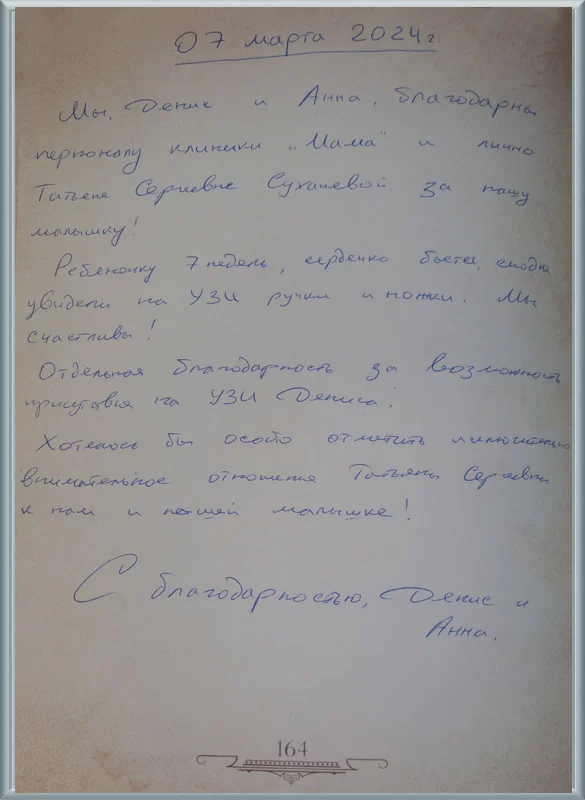 07 марта 2024г.
Мы, Денис и Анна, благодарны
персоналу клиники „Мама" и лично
Татьяне Сергеевне Сухачевой за нашу
малышку!
Ребеночку 7 недель, сердечко бьется, сегодня
увидели на УЗИ ручки и ножки. Мы
счастливы!
Отдельная благодарность за возможность
присутствия на УЗИ Дениса!
Хотелось бы особо отметить исключительно
внимательное отношение Татьяны Сергеевны
к нам и нашей малышке!
С благодарностью, Денис и
Анна.
164